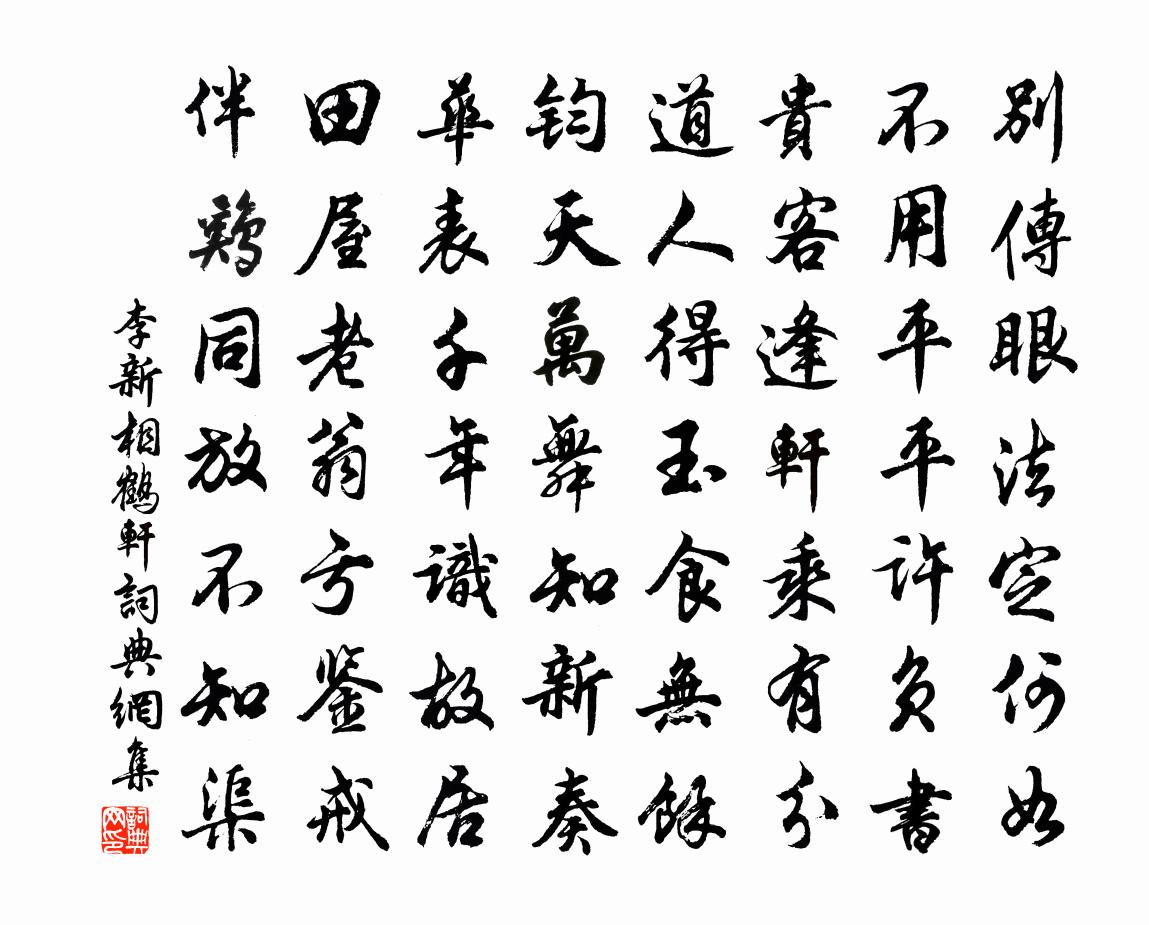 別傳眼法定何如
不用平平許負書
貴客逢軒乘有分
道人得玉食無餘
鈞天萬舞知新奏
華表千年識故居
田屋老翁亏鑒戒
伴鶏同放不知渠
李新相鶴軒詞典網集
詞典网印